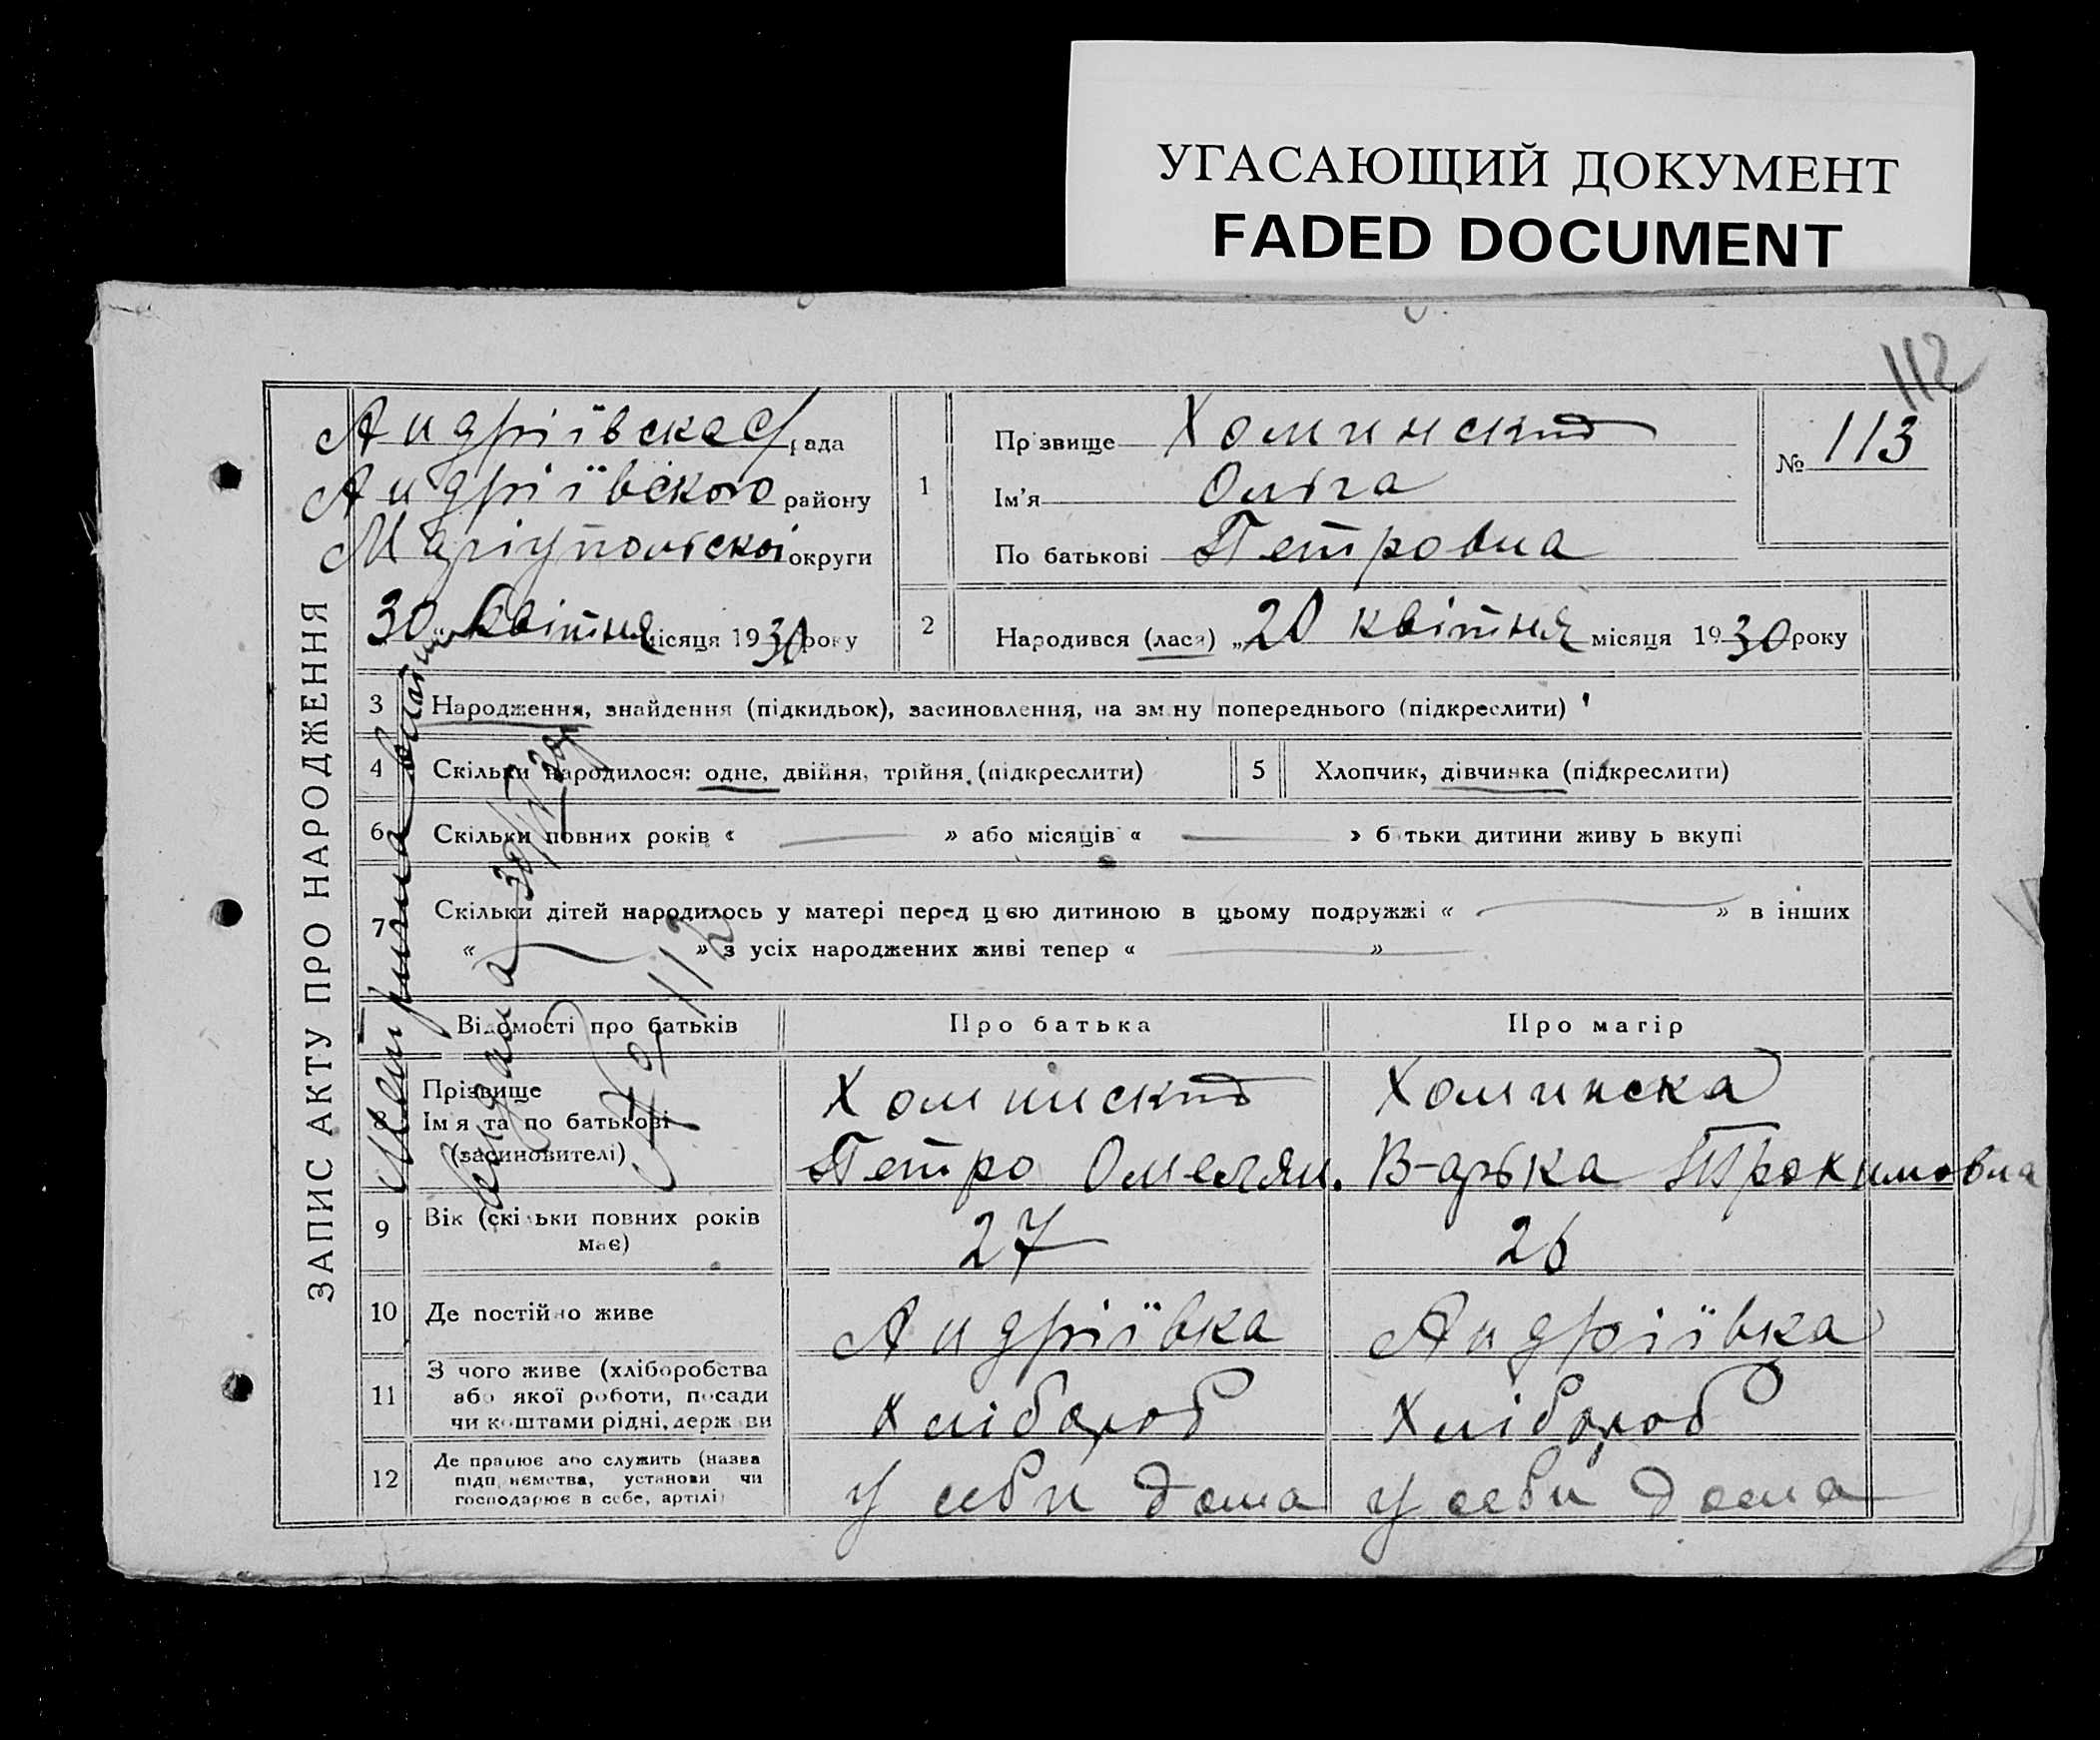 УГАСАЮЩИЙ ДОКУМЕНТ
FADED DOCUMENT
112
ЗАПИС АКТУ ПРО НАРОДЖЕННЯ
Андріївска с/рада
Андріївского району
Маріупольскої округи
30 квітня місяця 1930 року
1
Прізвище Хоминский
Ім'я Ольга
По батькові Петровна
№ 113
2
Народився (лася) „20 квітня місяця 1930 року
3
Народження, знайдення (підкидьок), засиновлення, на зміну попереднього (підкреслити)
4
Скільки народилося: одне, двійня, трійня, (підкреслити)
5
Хлопчик, дівчинка (підкреслити)
6
Скільки повних років « — » або місяців « — » батьки дитини живуть вкупі
7
Скільки дітей народилось у матері перед цією дитиною в цьому подружжі « — » в інших
« — » з усіх народжених живі тепер « — »
Метрична
видана 30/IV 30р
№ 112
Відомості про батьків
Про батька
Про матір
8
Прізвище
Ім'я та по батькові
(засиновителі)
Хоминский
Петро Омелян.
Хоминска
Варька Трохимовна
9
Вік (скільки повних років
має)
27
26
10
Де постійно живе
Андріївка
Андріївка
11
З чого живе (хліборобства
або якої роботи, посади
чи коштами рідні, держави
Хлібороб
Хлібороб
12
Де працює або служить (назва
підприємства, установи чи
господарює в себе, артілі)
у себи дома
у себи дома